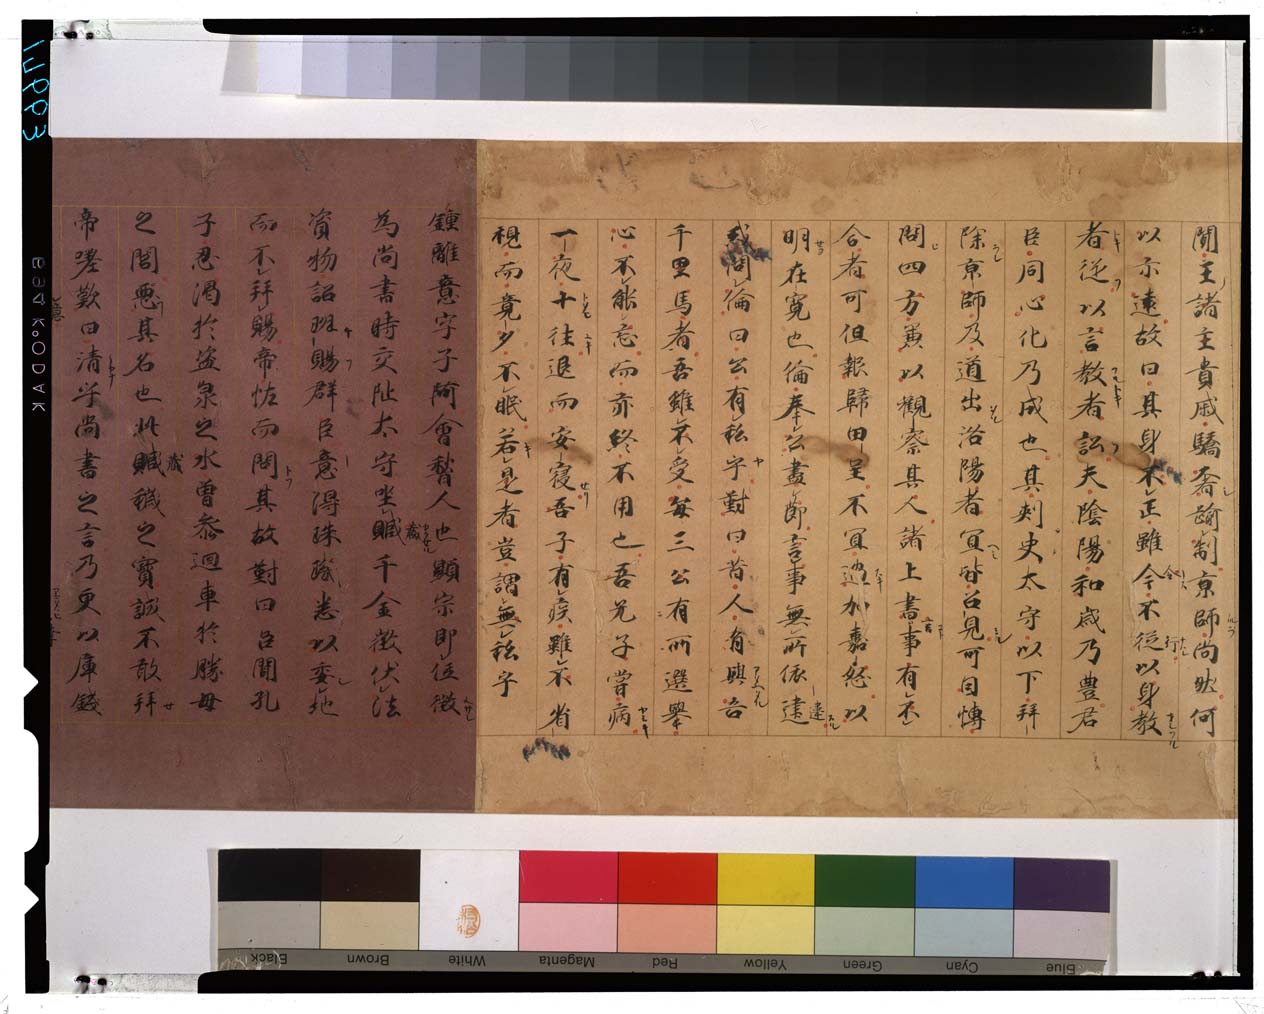 聞王諸主貴戚驕奢踰制京師尚然何
以示遠故曰其身不正雖令不從以身教
者從以言教者訟夫陰陽和歲乃豊君
臣同心化乃成也其刺史太守以下拜
除京師及道出洛陽者宜皆召見可因博
問四方兼以觀察其人諸上書事有不
合者可但報歸田里不宜過加喜怒以
明在寛也倫奉公盡節言事無所依違
或問倫曰公有私乎對曰昔人有與吾
千里馬者吾雖不受每三公有所選舉
心不能忘而亦終不用也吾兄子嘗病
一夜十往退而安寢吾子有疾雖不省
視而竟夕不眠若是者豈謂無私乎
鍾離意字子阿會稽人也顯宗即位徵
為尚書時交阯太守坐贓千金徵伏法
資物詔班賜群臣意得珠璣悉以委地
而不拜賜帝怪而問其故對曰臣聞孔
子忍渴於盗泉之水曾參迴車於勝母
之閭惡其名也此贓穢之寶誠不敢拜
帝嗟歎曰清乎尚書之言乃更以庫錢
Black Brown White Magenta Red Yellow Green Cyan Blue